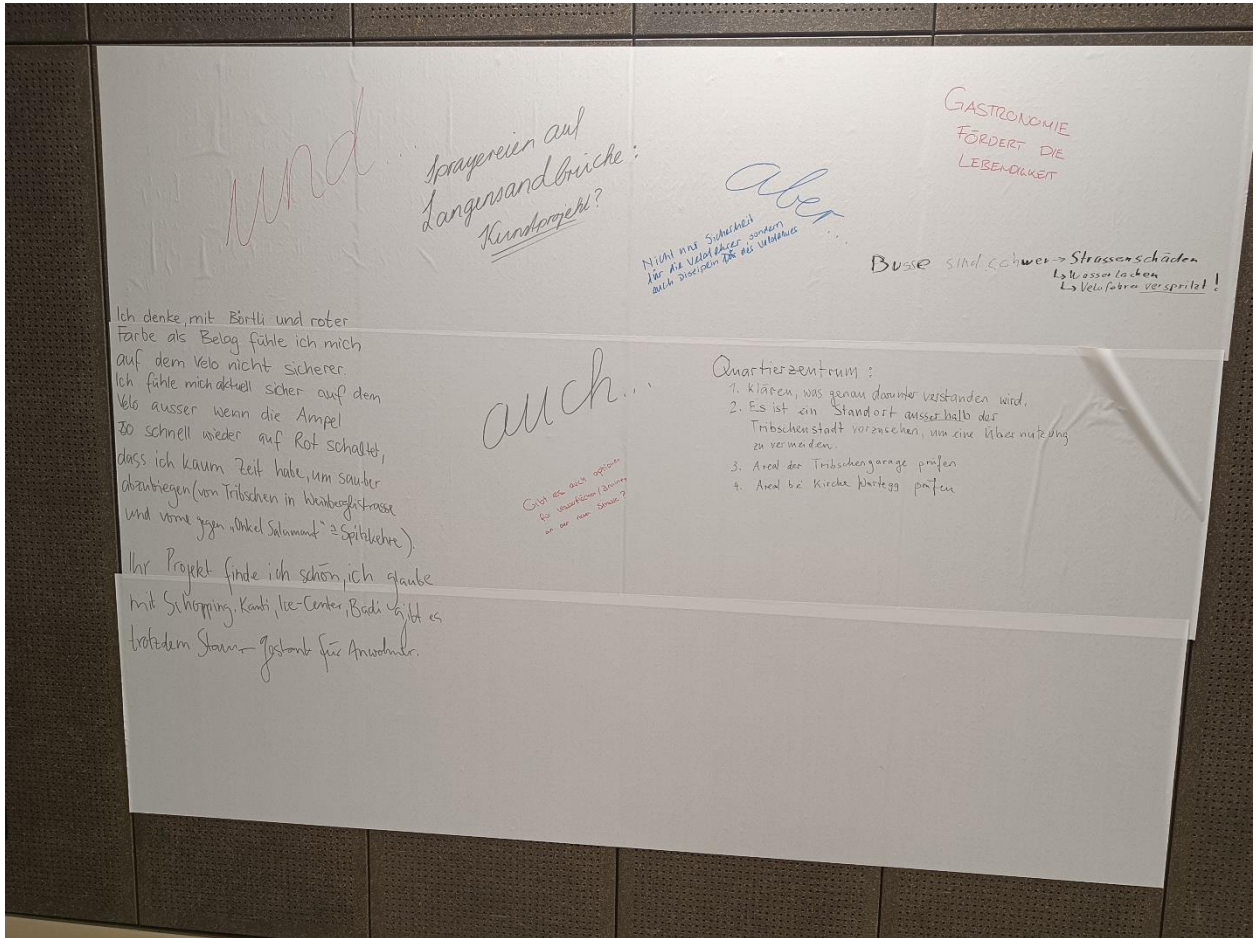 und...
Sprayereien auf
Langensandbrücke:
Kunstprojekt?
aber...
Nicht nur Sicherheit
für die Velofahrer sondern
auch Disziplin des Velofahrers
GASTRONOMIE
FÖRDERT DIE
LEBENDIGKEIT
Busse sind schwer → Strassenschäden
↳ Wasserlachen
↳ Velofahrer verspritzt!
Ich denke, mit Börtli und roter
Farbe als Belag fühle ich mich
auf dem Velo nicht sicherer.
Ich fühle mich aktuell sicher auf dem
Velo ausser wenn die Ampel
so schnell wieder auf Rot schaltet,
dass ich kaum Zeit habe, um sauber
abzubiegen (von Tribschen in Weinberglistrasse
und vorne gegen "Onkel Salamant" = Spitzkehre).
Ihr Projekt finde ich schön, ich glaube
mit Schopping, Kanti, Ice-Center, Badi gibt es
trotzdem Stau – Gestank für Anwohner.
auch...
Gibt es auch optionen
für
an der neuen Strasse?
Quartierzentrum:
1. Klären, was genau darunter verstanden wird.
2. Es ist ein Standort ausserhalb der
Tribschenstadt vorzusehen, um eine Übernutzung
zu vermeiden.
3. Areal der Tribschengarage prüfen
4. Areal bei Kirche Wartegg prüfen